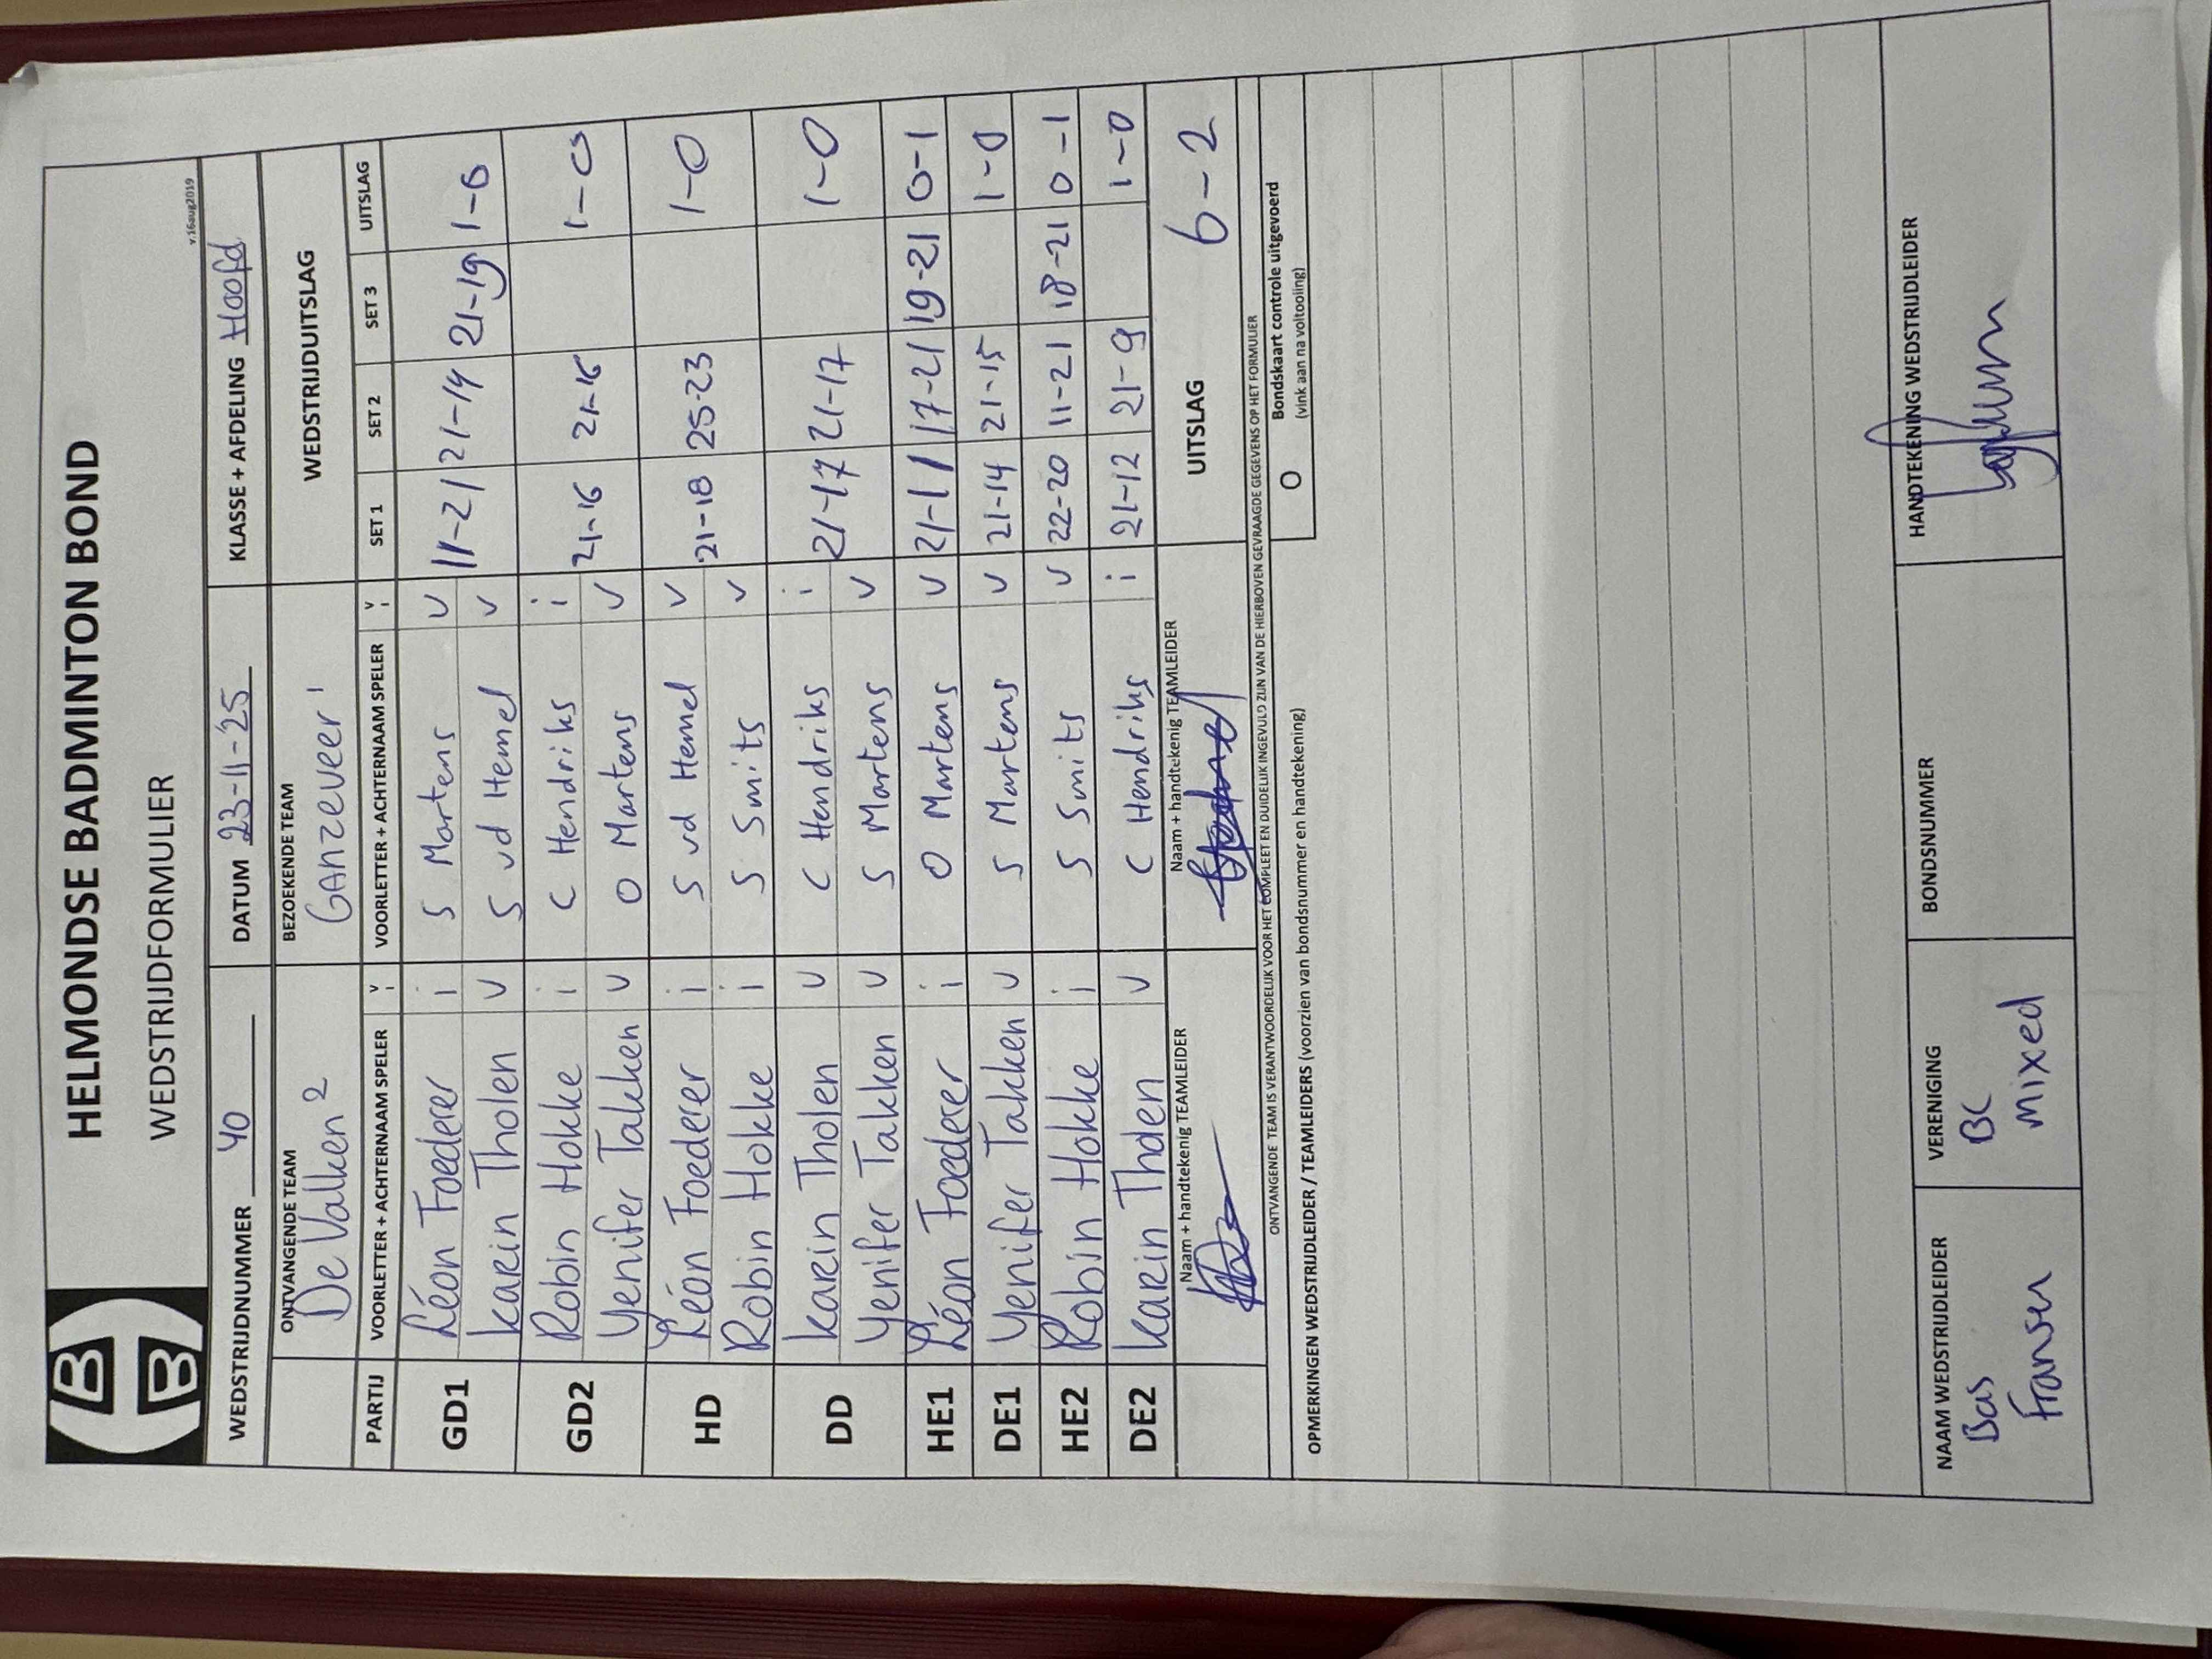 HELMONDSE BADMINTON BOND
WEDSTRIJDFORMULIER
v.16aug2019
WEDSTRIJDNUMMER 40 DATUM 23-11-'25 KLASSE + AFDELING Hoofd
ONTVANGENDE TEAM BEZOEKENDE TEAM WEDSTRIJDUITSLAG
De Valken 2 GANzeveer 1
PARTIJ VOORLETTER + ACHTERNAAM SPELER V I VOORLETTER + ACHTERNAAM SPELER V I SET 1 SET 2 SET 3 UITSLAG
GD1 Léon Foederer i S Martens v 11-21 21-14 21-19 1-0
Karin Tholen v S vd Hemel v
GD2 Robin Hokke i C Hendriks i 21-16 21-16 1-0
Yenifer Takken v O Martens v
HD Léon Foederer i S vd Hemel v 21-18 25-23 1-0
Robin Hokke i S Smits v
DD Karin Tholen v C Hendriks i 21-17 21-17 1-0
Yenifer Takken v S Martens v
HE1 Léon Foederer i O Martens v 21-11 17-21 19-21 0-1
DE1 Yenifer Takken v S Martens v 21-14 21-15 1-0
HE2 Robin Hokke i S Smits v 22-20 11-21 18-21 0-1
DE2 Karin Tholen v C Hendriks i 21-12 21-9 1-0
Naam + handtekenig TEAMLEIDER Naam + handtekenig TEAMLEIDER UITSLAG 6-2
ONTVANGENDE TEAM IS VERANTWOORDELIJK VOOR HET COMPLEET EN DUIDELIJK INGEVULD ZIJN VAN DE HIERBOVEN GEVRAAGDE GEGEVENS OP HET FORMULIER
OPMERKINGEN WEDSTRIJDLEIDER / TEAMLEIDERS (voorzien van bondsnummer en handtekening) O Bondskaart controle uitgevoerd
(vink aan na voltooiing)
NAAM WEDSTRIJDLEIDER VERENIGING BONDSNUMMER HANDTEKENING WEDSTRIJDLEIDER
Bas BC
Fransen Mixed